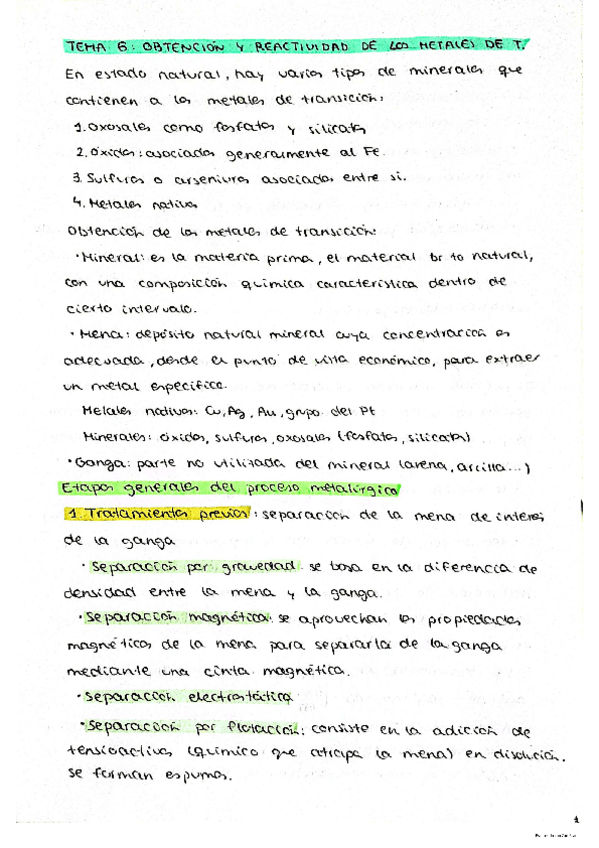 TEMA 6: OBTENCIÓN Y REACTIVIDAD DE LOS METALES DE T.
En estado natural, hay varios tipos de minerales que
contienen a los metales de transición:
1. Oxosales como fosfatos y silicatos
2. Óxidos: asociados generalmente al Fe.
3. Sulfuros o arseniuros asociados entre si.
4. Metales nativos
Obtención de los metales de transición:
· Mineral: es la materia prima, el material br to natural,
con una composición química característica dentro de
cierto intervalo.
· Mena: depósito natural mineral cuya concentración es
adecuada, desde el punto de vista económico, para extraer
un metal específico.
Metales nativos: Cu, Ag, Au, grupo del Pt
Minerales: óxidos, sulfuros, oxosales (fosfatos, silicatos)
· Ganga: parte no utilizada del mineral (arena, arcilla...)
Etapas generales del proceso metalúrgico
1. Tratamientos previos: separación de la mena de interés
de la ganga
· Separación por gravedad: se basa en la diferencia de
densidad entre la mena y la ganga.
· Separación magnética: se aprovechan las propiedades
magnéticas de la mena para separarla de la ganga
mediante una cinta magnética.
· Separación electrostática
· Separación por flotación: consiste en la adición de
tensioactivos (químico que atrapa la mena) en disolución.
Se forman espumas.
1